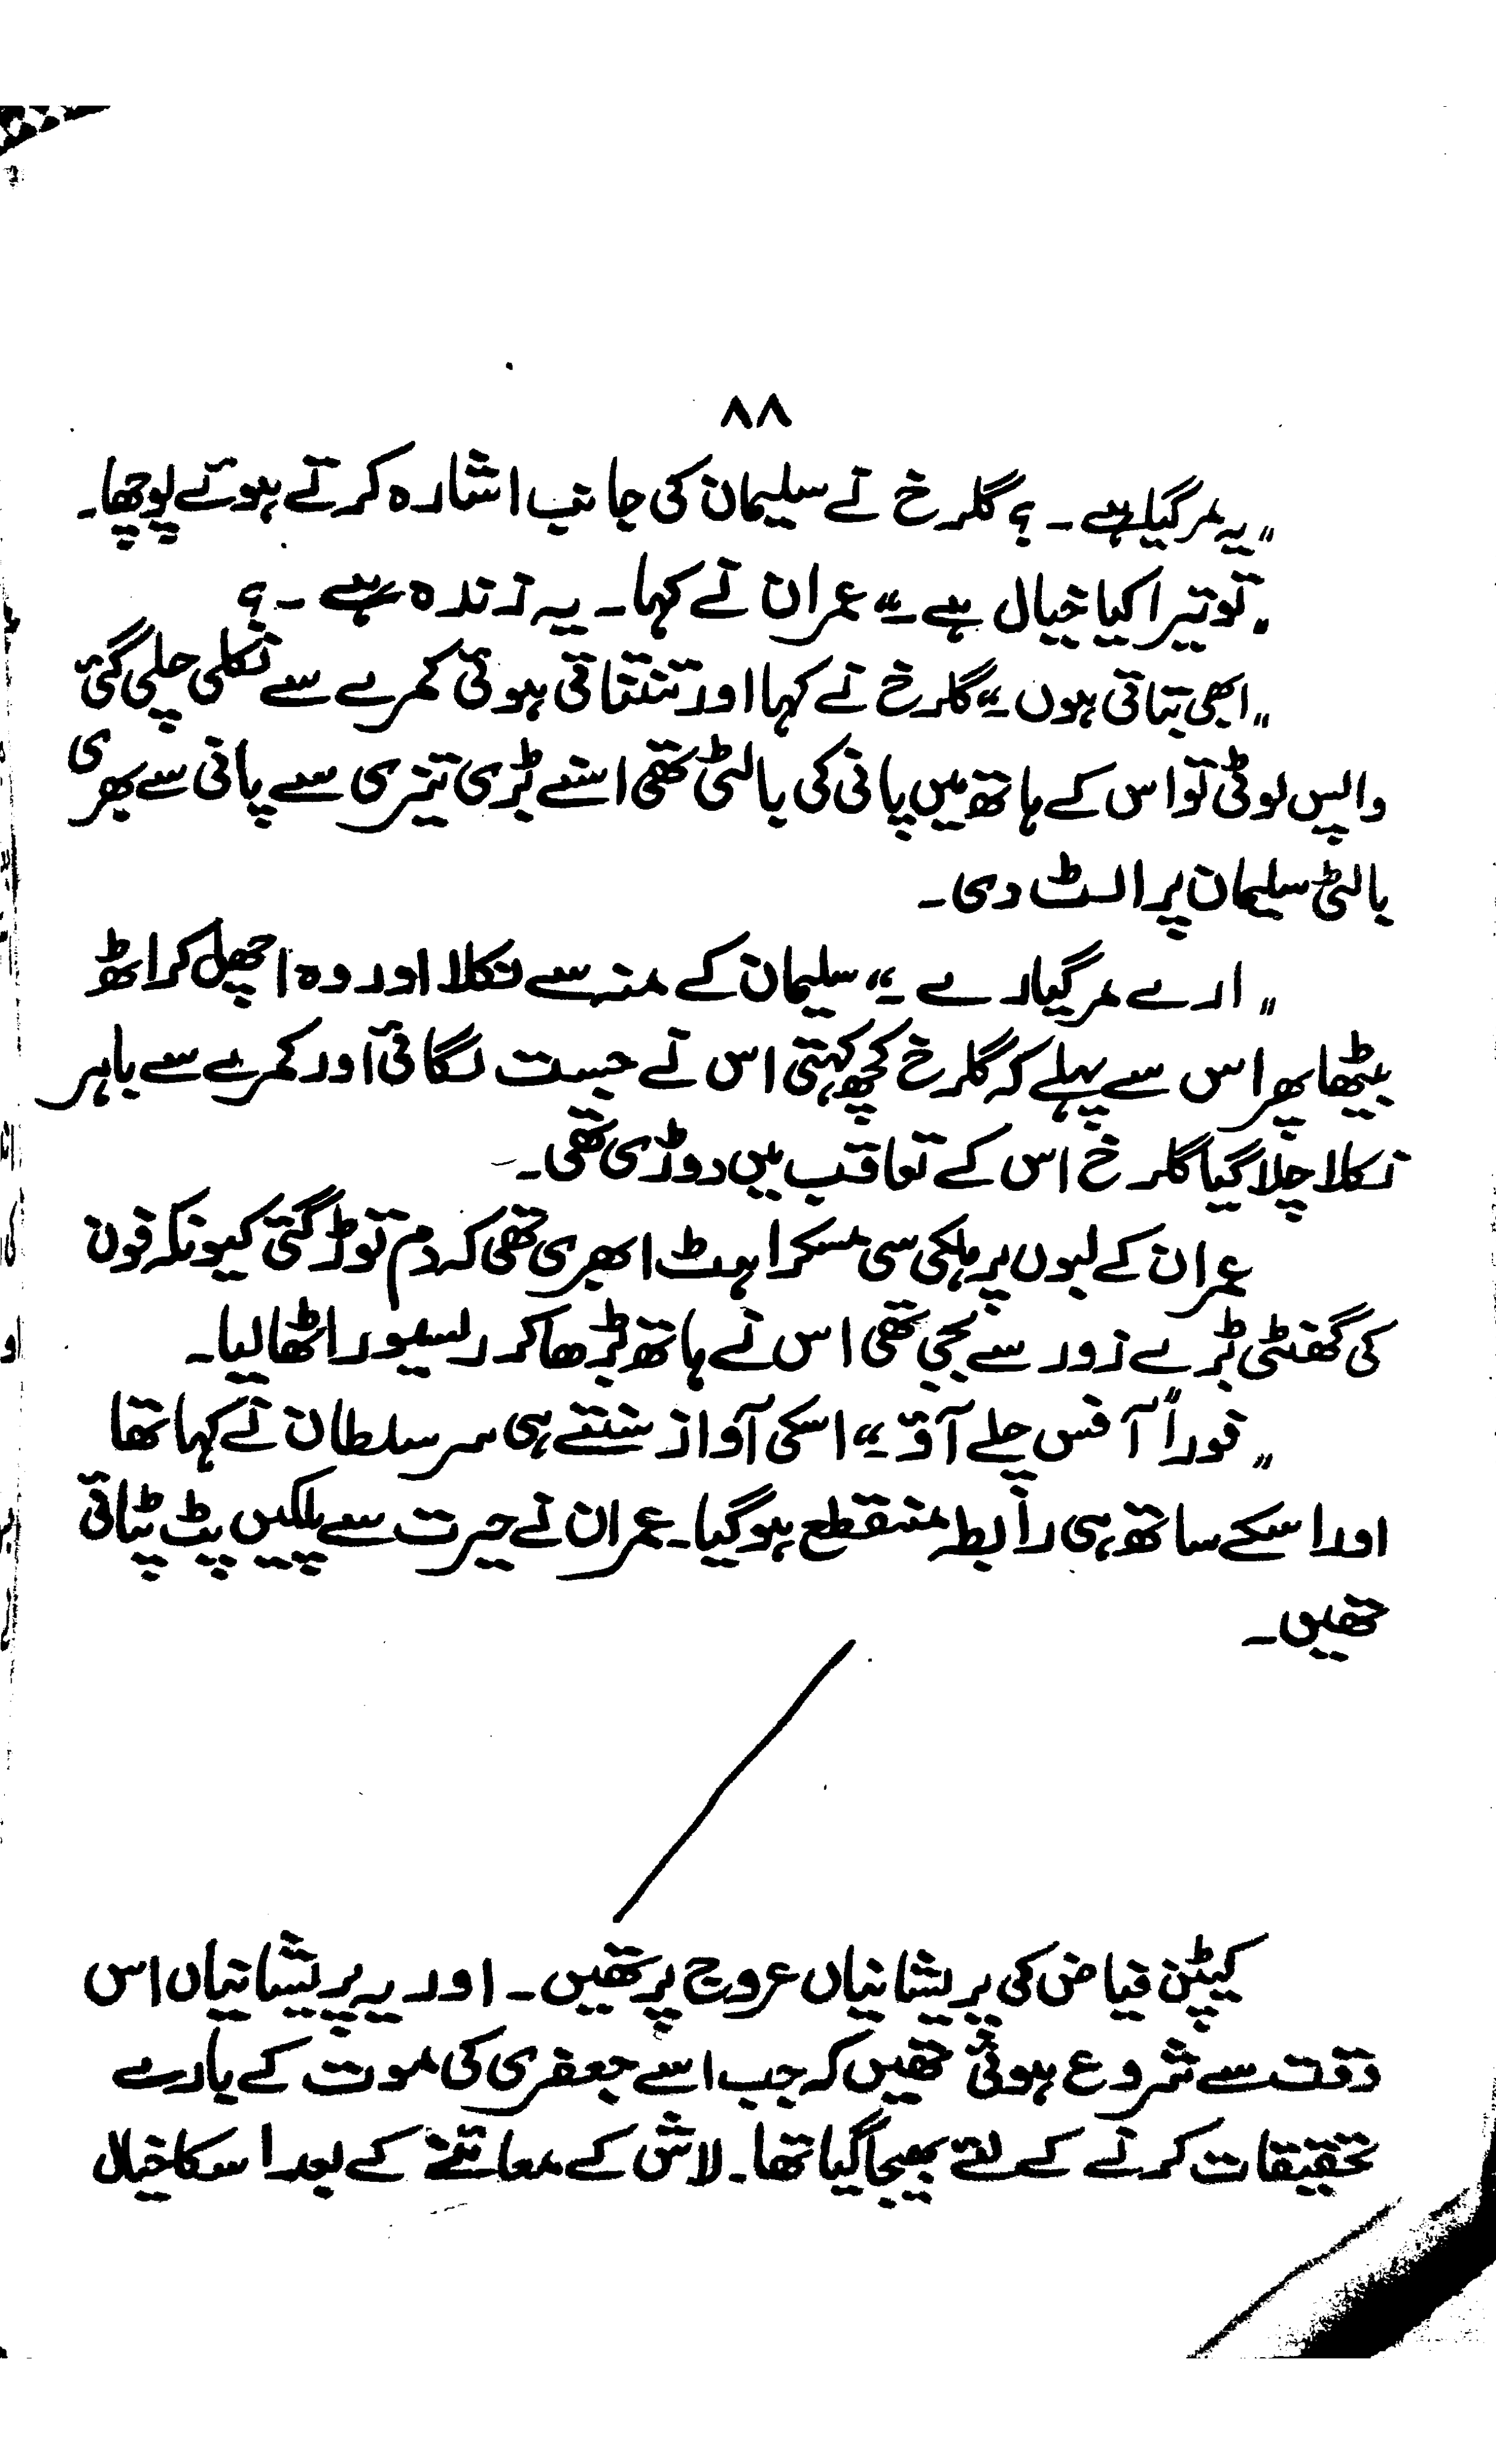 ۸۸
"یہ مر گیا ہے ۔ ؟ گلرخ نے سلیمان کی جانب اشارہ کرتے ہوئے پوچھا۔
"تو تیرا کیا خیال ہے ۔" عمران نے کہا ۔ یہ زندہ ہے ۔ ؟
"ابھی بتاتی ہوں ۔" گلرخ نے کہا اور تنتناتی ہوئی کمرے سے نکلی چلی گئی
واپس لوٹی تو اس کے ہاتھ میں پانی کی بالٹی تھی اسنے بڑی تیزی سے پانی سے بھری
بالٹی سلیمان پر الٹ دی ۔
"ارے مر گیا رے ۔" سلیمان کے منہ سے نکلا اور وہ اچھل کر اٹھ
بیٹھا پھر اس سے پہلے کہ گلرخ کچھ کہتی اس نے جست لگائی اور کمرے سے باہر
نکلا چلا گیا گلرخ اس کے تعاقب میں دوڑی تھی ۔
عمران کے لبوں پر ہلکی سی مسکراہٹ ابھری تھی کہ دم توڑ گئی کیونکہ فون
کی گھنٹی بڑے زور سے بجی تھی اس نے ہاتھ بڑھا کر رسیور اٹھا لیا ۔
"فوراً آفس چلے آؤ ۔" اسکی آواز سنتے ہی سر سلطان نے کہا تھا
اور اسکے ساتھ ہی رابطہ منقطع ہو گیا ۔ عمران نے حیرت سے پلکیں پٹ پٹائی
تھیں ۔
کیپٹن فیاض کی پریشانیاں عروج پر تھیں ۔ اور یہ پریشانیاں اس
وقت سے شروع ہوئی تھیں کہ جب اسے جعفری کی موت کے بارے
تحقیقات کرنے کے لئے بھیجا گیا تھا ۔ لاش کے معائنے کے بعد اسکا خیال